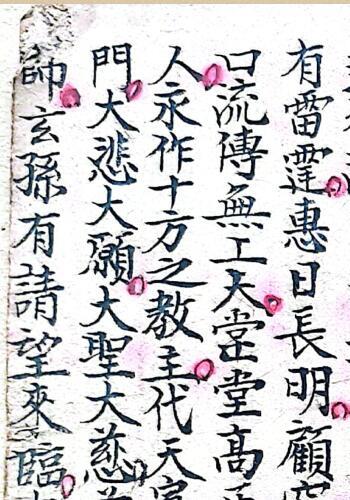 有雷霆惠日長明顧
口流傳無工大堂高
人永作十方之教主代天宣
門大悲大願大聖大慈
帥玄孫有請望來臨